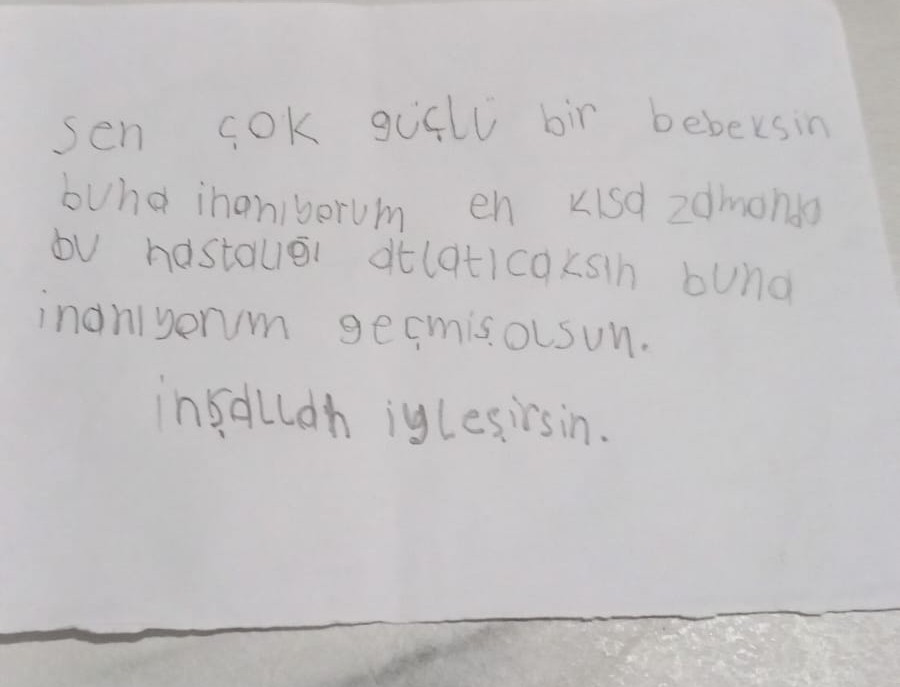 sen çok güçlü bir bebeksin
buna inanıyorum en kısa zamanda
bu hastalığı atlatıcaksın buna
inanıyorum geçmiş olsun.
inşallah iyleşirsin.